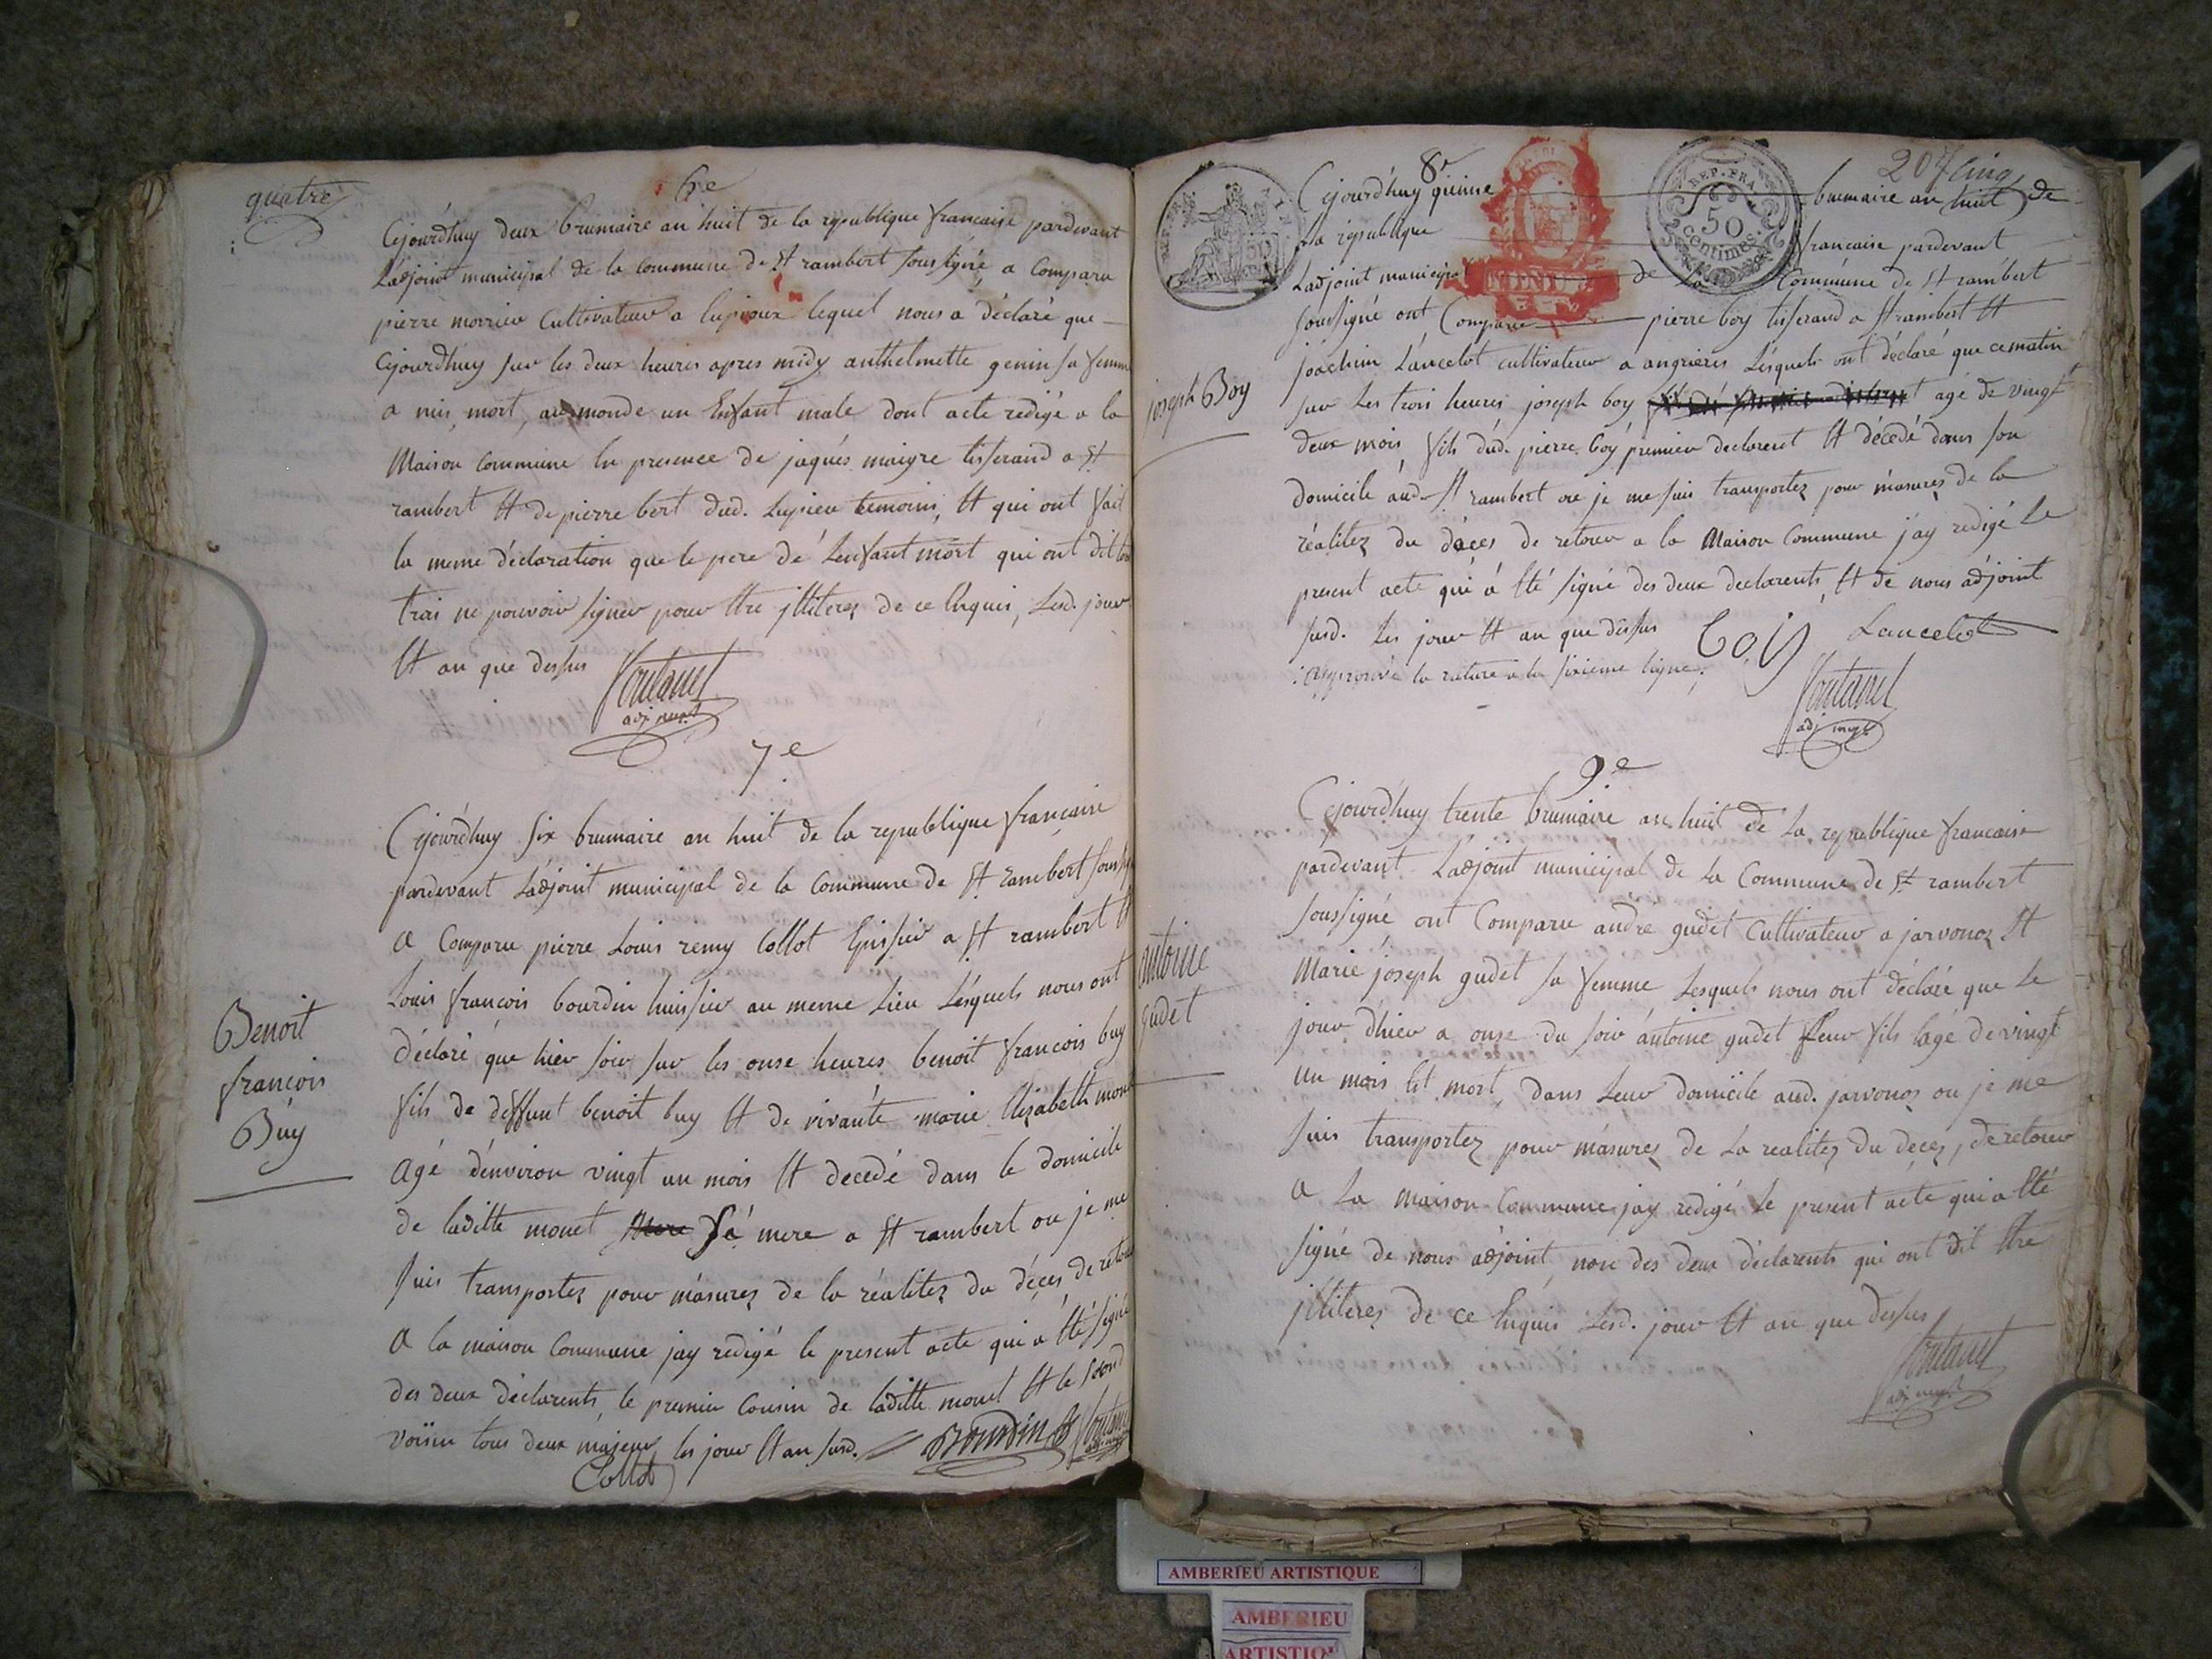 quatre
6e
Cejourd'huy deux brumaire an huit de la republique francaise pardevant
Ladjoint municipal de la Commune de St rambert soussigné a Comparu
pierre morrier Cultivateur a lupieux lequel nous a déclaré que
Cejourd'huy sur les deux heures apres midy anthelmette genin sa femme
a mis mort, au monde un Enfant male dont acte redigé a la
Maison Commune En presence de jaqués maigre tisserand a St
rambert Et de pierre bert dud. Lupieu temoins, Et qui ont fait
la meme déclaration que le pere dé Lenfant mort qui ont dit tous
trois ne pouvoir signer pour Etre jlliterez de ce Enquis, Lesd. jour
Et an que dessus
adj. mupal
7e
Cejourd'huy Six brumaire an huit de la republique française
pardevant Ladjoint municipal de la Commune de St Rambert soussigné
a Comparu pierre Louis remy Collot Epissier a St rambert Et
Louis francois bourdin huissier au meme Lieu Lesquels nous ont
déclaré que hier soir sur les onse heures benoit francois buy
fils de deffunt benoit buy Et de vivante marie Elisabeth monet
Agé d'environ vingt un mois Et decedé dans le domicile
de laditte monet Mere Sa mere a St rambert ou je me
suis transportez pour m'asurez de la réalitez du déces de retour
a la maison Commune jay redigé le present acte qui a Eté signé
des deux déclarents, le premier Cousin de laditte monet Et le second
voisin tous deux majeurs, les jour Et an susd.
Bourdin
Collot
Benoit
françois
Buy
8e
20
cinq
REP. FRA.
50
centimes
Cejourd'huy quinse brumaire an huit de
La republique francaise pardevant
Ladjoint municipal de La Commune de St rambert
soussigné ont Comparu pierre boy tisserand a St rambert Et
joachim Lancelot cultivateur a angrieres Lesquels ont déclaré que ce matin
sur Les trois heures joseph boy agé de vingt
deux mois, fils dud. pierre boy premier declarent Et décedé dans son
domicile aud. St rambert ou je me suis transportez pour m'asurez de la
réalitez du déces de retour a la Maison Commune j'ay redigé Le
present acte qui a Eté signé des deux declarents, Et de nous adjoint
susd. Les jour Et an que dessus
approuvé la rature a la sixieme ligne.
boy
Lancelot
adj. mupal
joseph Boy
9e
Cejourd'huy trente brumaire an huit de La republique francaise
pardevant Ladjoint municipal de La Commune de St rambert
soussigné ont Comparu andré gudet Cultivateur a jarvonoz Et
Marie joseph gudet sa femme Lesquels nous ont déclaré que Le
jour d'hier a onze du soir antoine gudet Leur fils agé de vingt
un mois Est mort, dans Leur domicile aud. jarvonoz ou je me
suis transportez pour m'asurez de La realitez du decez, de retour
a La maison Commune jay redigé Le present acte qui a Eté
signé de nous adjoint, non des deux déclarents qui ont dit Etre
jlliterez de ce Enquis Lesd. jour Et an que dessus
antoine
gudet
AMBERIEU ARTISTIQUE
AMBERIEU
ARTISTIQU